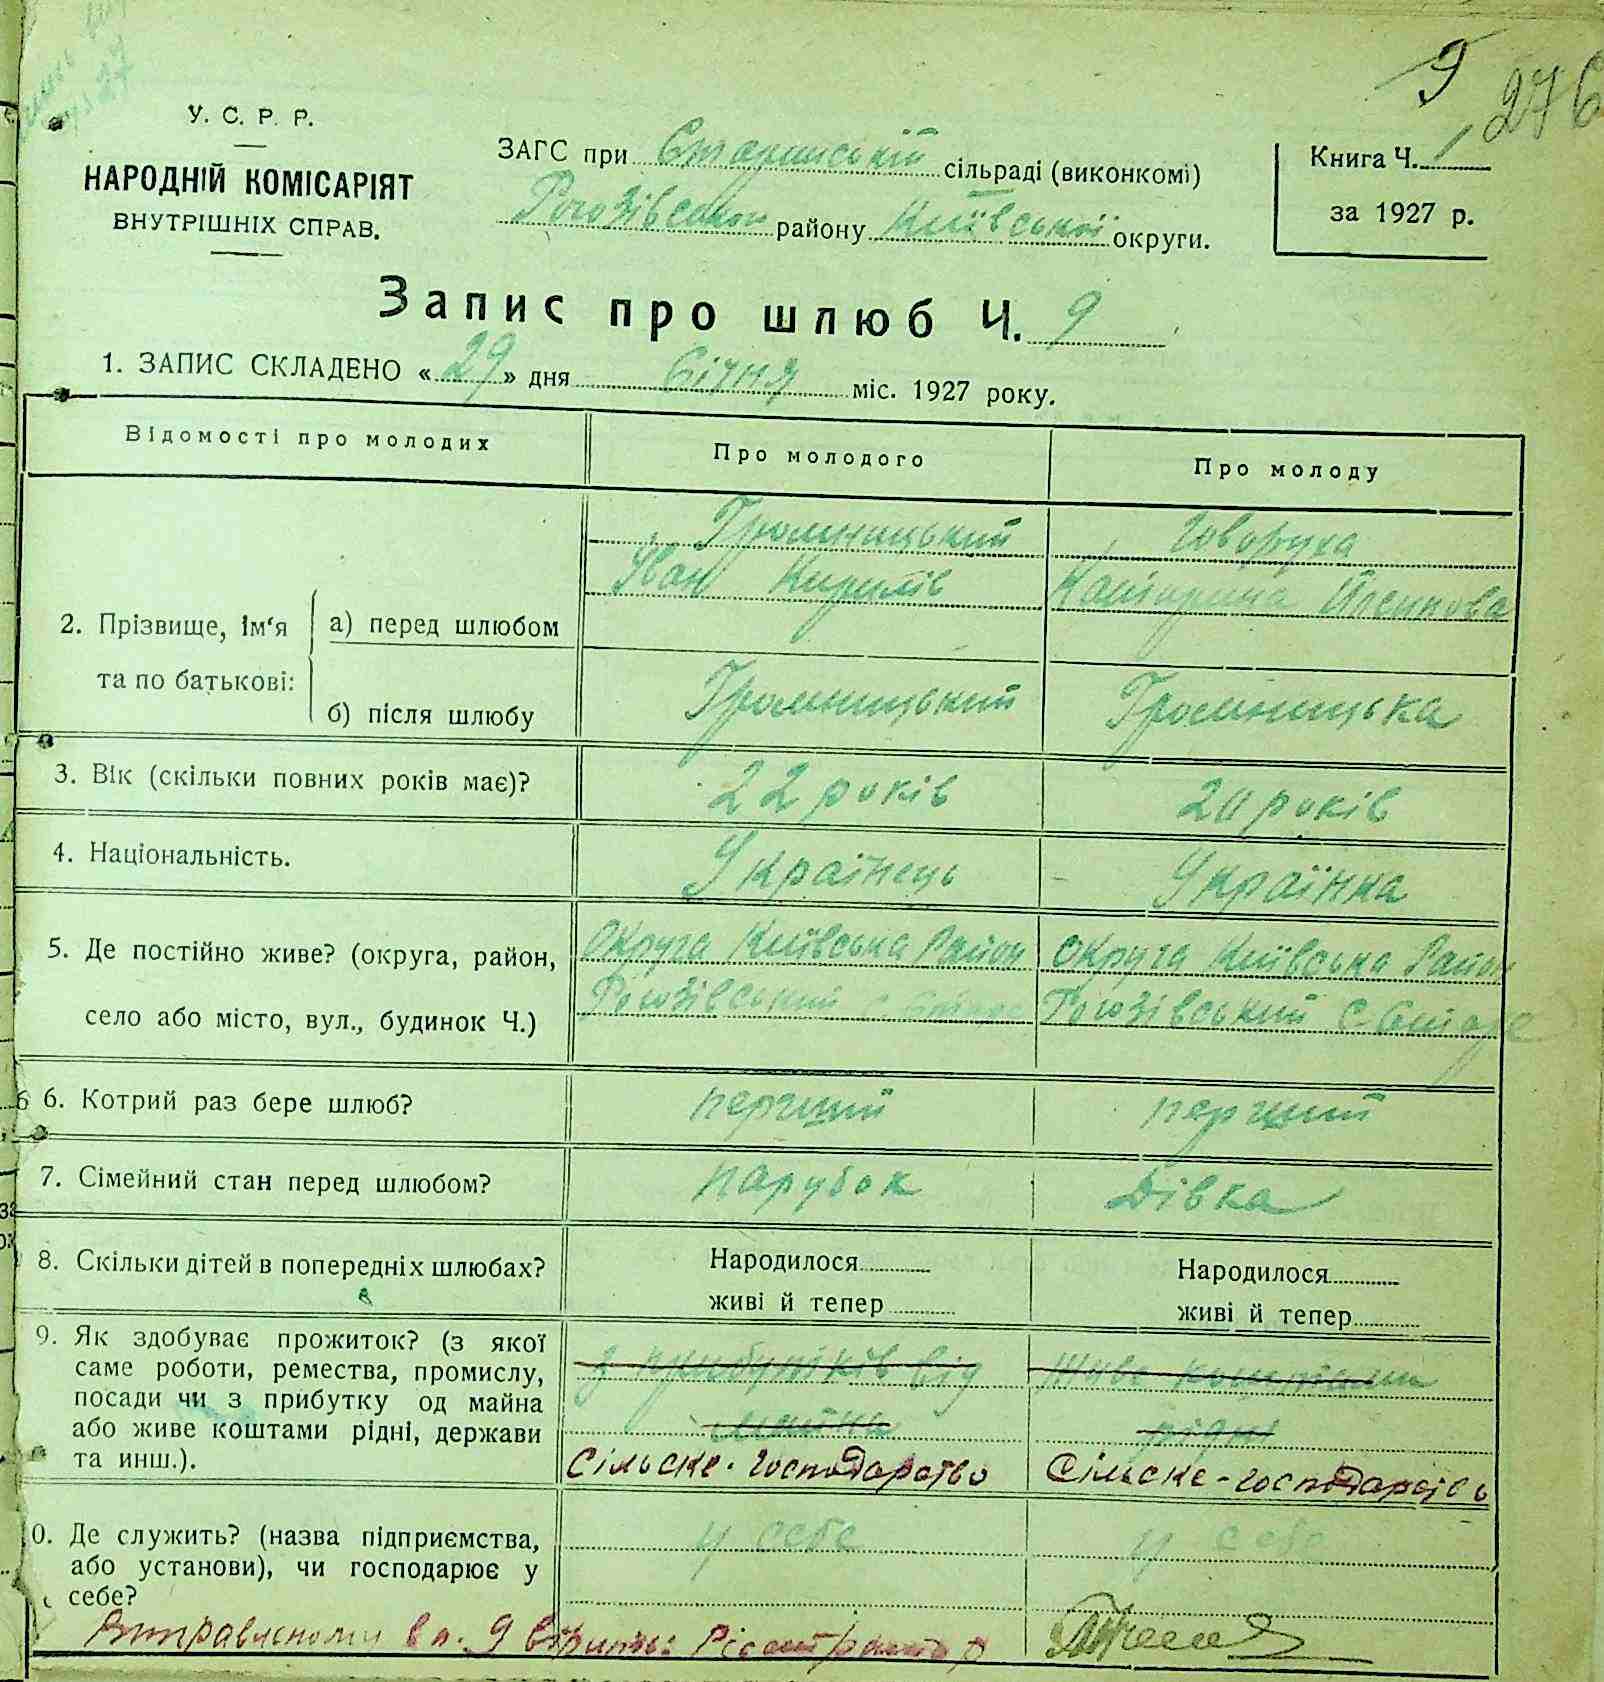 9
276
У. С. Р. Р.
НАРОДНІЙ КОМІСАРІЯТ
ВНУТРІШНІХ СПРАВ.
ЗАГС при Старинській сільраді (виконкомі)
Рогозівського району Київської округи.
Книга Ч. 1
за 1927 р.
Запис про шлюб Ч. 9
1. ЗАПИС СКЛАДЕНО « 29 » дня Січня міс. 1927 року.
Відомості про молодих Про молодого Про молоду
Громницький Говоруха
Іван Кирилів Катірина Йосипова
2. Прізвище, ім'я та по батькові: а) перед шлюбом
б) після шлюбу Громницький Громницька
3. Вік (скільки повних років має)? 22 років 20 років
4. Національність. Українець Українка
5. Де постійно живе? (округа, район, Округа Київська Район Округа Київська Район
село або місто, вул., будинок Ч.) Рогозівський с. Старе Рогозівський с. Старе
6. Котрий раз бере шлюб? перший перший
7. Сімейний стан перед шлюбом? парубок Дівка
8. Скільки дітей в попередніх шлюбах? Народилося Народилося
живі й тепер живі й тепер
9. Як здобуває прожиток? (з якої
саме роботи, ремества, промислу, з прибутків від живе коштами
посади чи з прибутку од майна
або живе коштами рідні, держави майна рідні
та инш.). Сільске-господарство Сільске-господарство
0. Де служить? (назва підприємства, у себе у себе
або установи), чи господарює у
себе?
в п. 9